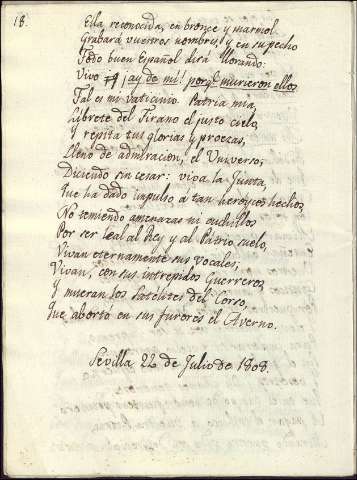 18.
Ella reconocida, en bronce y marmol
Grabará vuestros nombres, y en su pecho
Todo buen Español dirá llorando:
Vivo yo ¡ay de mi! porq.e murieron ellos
Tal es mi vaticinio. Patria mia,
Librete del Tirano el justo cielo,
y repita tus glorias y proezas,
Lleno de admiracion, el Universo;
Diciendo sin cesar: viva la Junta,
Que ha dado impulso a tan heroycos hechos
No temiendo amenazas ni cuchillos
Por ser leal al Rey y al Patrio suelo,
Vivan eternamente sus vocales,
Vivan, con sus intrepidos Guerreros,
Y mueran los Satélites del Corso,
Que aborto en sus furores el Averno.
Sevilla 22 de Julio de 1808.